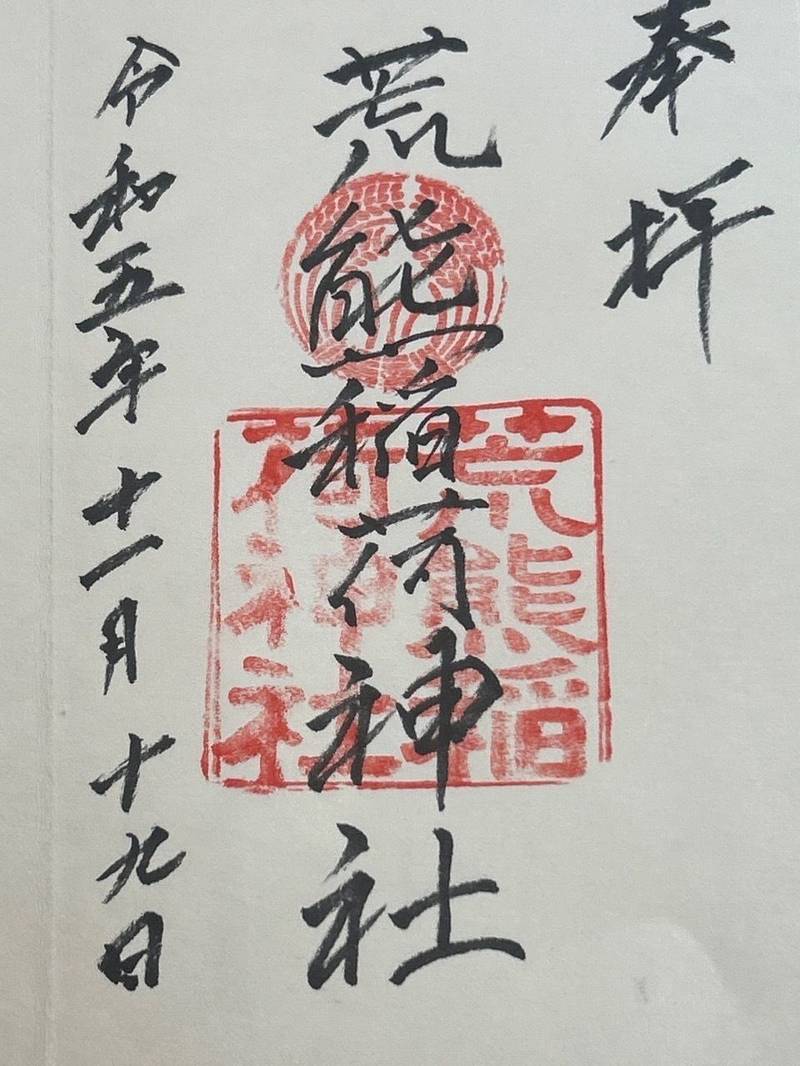 奉拝
荒熊稲荷神社
荒熊稲
荷神社
令和五年十一月十九日